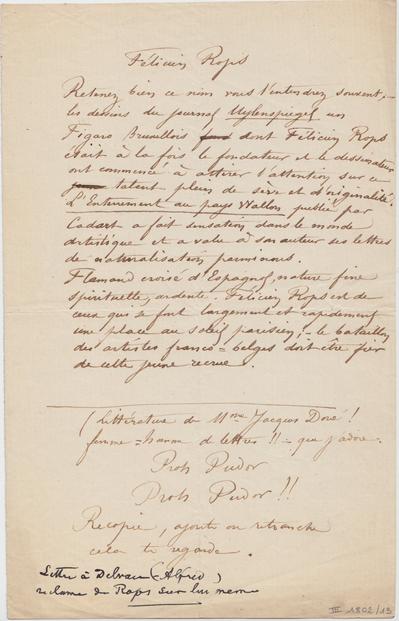 Félicien Rops
Retenez bien ce nom vous l'entendrez souvent, –
les dessins du journal Uylenspiegel un
Figaro Bruxellois dont Félicien Rops
était à la fois le fondateur et le dessinateur
ont commencé à attirer l'attention sur ce
talent plein de sève et d'originalité.
L'Enterrement au pays Wallon publié par
Cadart a fait sensation dans le monde
artistique et a valu à son auteur ses lettres
de naturalisation parisiennes.
Flamand croisé d'Espagnol, nature fine
spirituelle, ardente. Félicien Rops est de
ceux qui se font largement et rapidement
une place au soleil parisien, – le bataillon
des artistes franco=belges doit être fier
de cette jeune recrue.
(Littérature de Mme Jacques Doré!
femme=homme de lettres!! – que j'adore.
Proh Pudor
Proh Pudor!!
Recopie, ajoute ou retranche
cela te regarde.
Lettre à Delvau (Alfred)
réclame de Rops sur lui même
III 1802/13